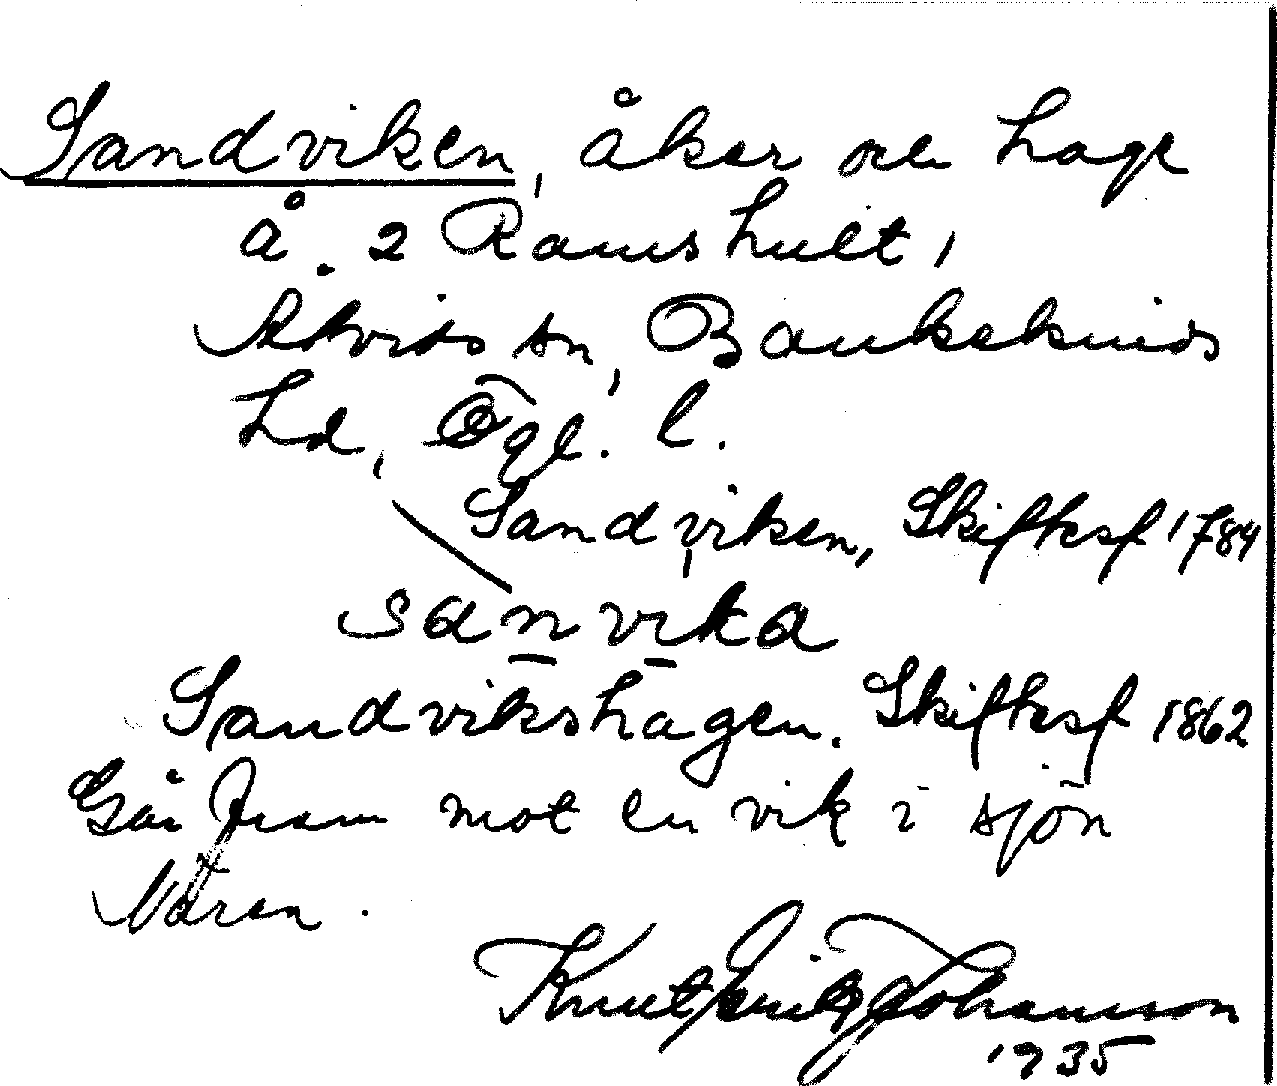 Sandviken, åker och hage
å. 2 Ramshult,
Åtvids sn, Bankekinds
hd, Ögl. l.
Sandviken, Skifteskf 1784
sanvika
Sandvikshagen. Skifteskf 1862
Går fram mot en vik i sjön
Nären.
Knut Johansson
1935